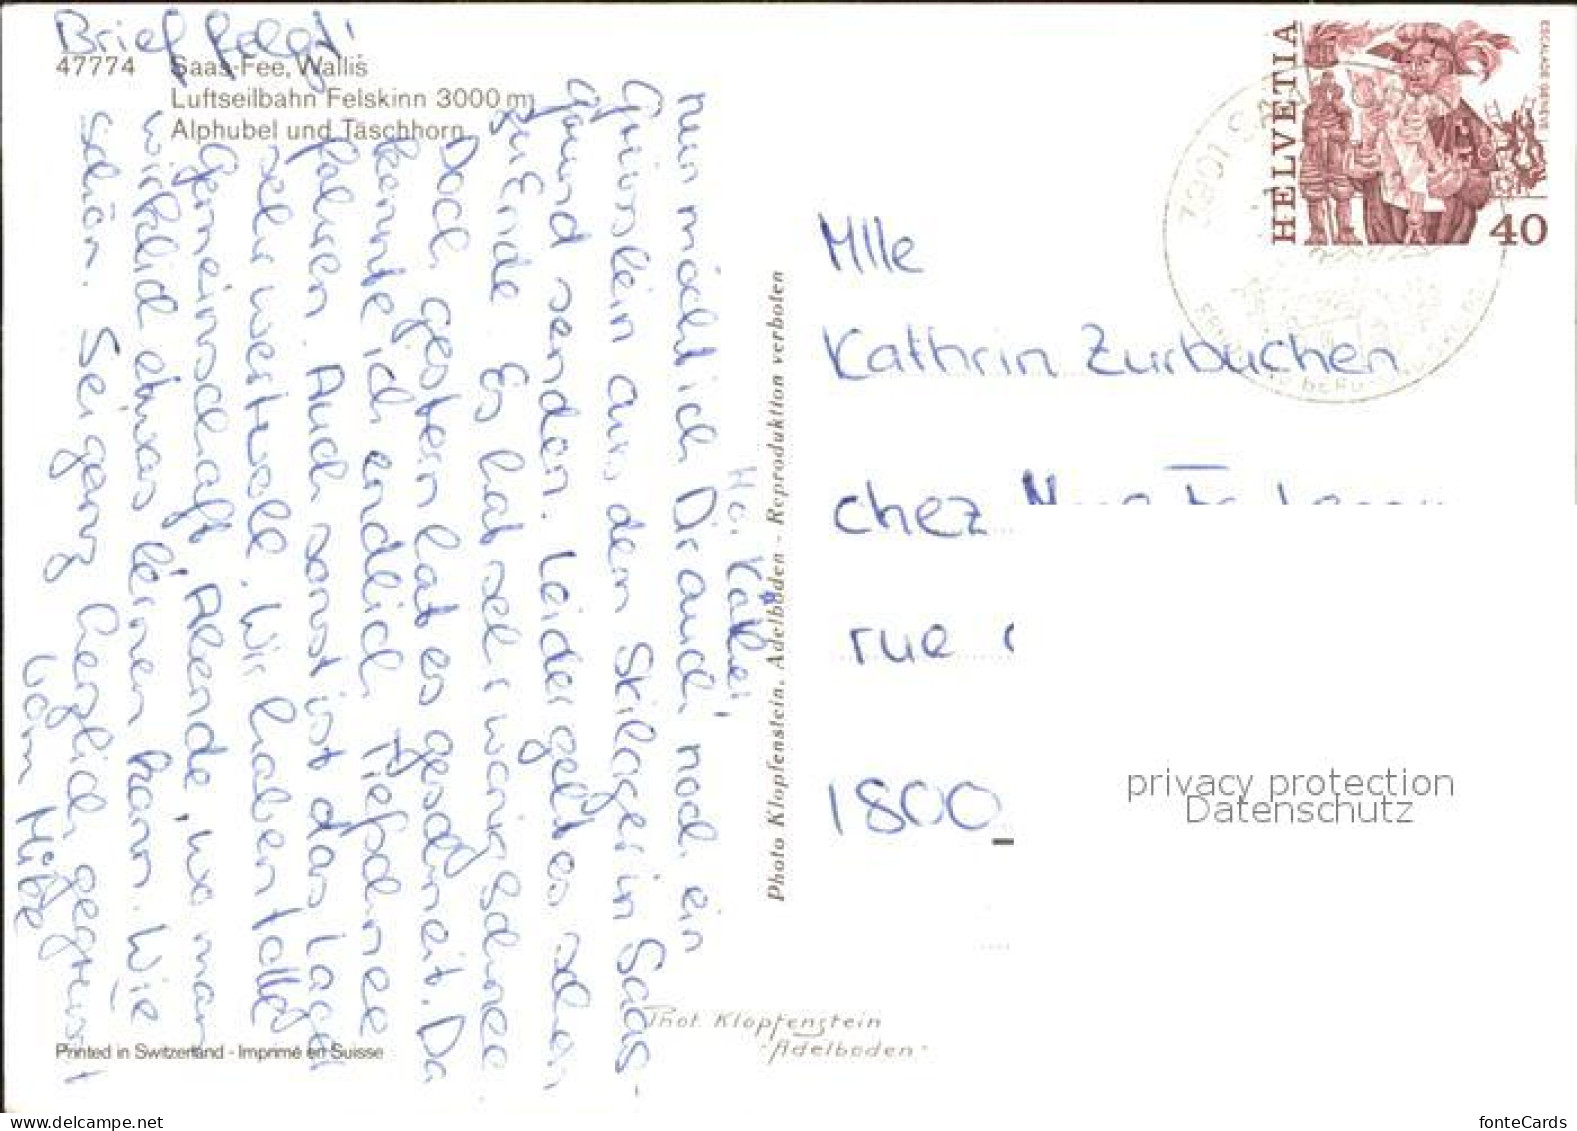 Brief folgt!
47774 Saas-Fee, Wallis
Luftseilbahn Felskinn 3000 m
Alphubel und Täschhorn
Hoi Käthi!
nun möcht ich Dir auch noch ein
Grüsslein aus dem Skilager in Saas-
Grund senden. Leider geht es schon
zu Ende. Es hat sehr wenig Schnee
Doch gestern hat es geschneit. Da
konnte ich endlich Tiefschnee
fahren. Auch sonst ist das Lager
sehr wertvoll. Wir haben tolle
Gemeinschaft, Abende, wo man
wirklich etwas lernen kann. Wie
schön. Sei ganz herzlich gegrüsst
vom
Printed in Switzerland - Imprimé en Suisse
Photo Klopfenstein, Adelboden - Reproduktion verboten
Phot. Klopfenstein
Adelboden
HELVETIA
ESCALADE GENÈVE
40
Mlle
Kathrin Zurbuchen
chez
rue
1800
privacy protection
Datenschutz
www.delcampe.net
fonteCards